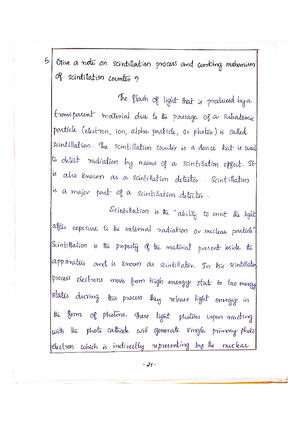 5. Give a note on scintillation process and working mechanism
of scintillation counter ?
The flash of light that is produced by a
transparent material due to the passage of a subatomic
particle (electron, ion, alpha particle, or photos) is called
scintillation. The scintillation counter is a device that is used
to detect radiation by means of a scintillation effect. It
is also known as a scintillation detector. Scintillation
is a major part of a scintillation detector.
Scintillation is the "ability to emit the light
after exposure to the external radiation or nuclear particle"
Scintillation is the property of the material present inside the
apparatus and is known as scintillator. In this scintillation
process electrons move from high energy state to low energy
states during this process they release light energy in
the form of photons. These light photons upon meeting
with the photo cathode will generate single primary photo
electron which is indirectly representing by the nuclear
-21-